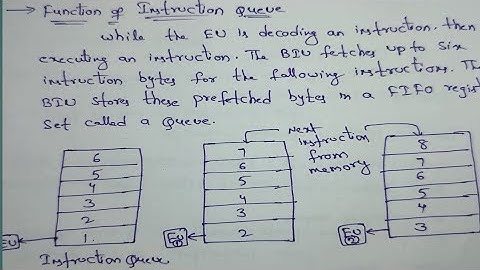 → Function of Instruction Queue
While the EU is decoding an instruction. then
executing an instruction. The BIU fetches up to six
instruction bytes for the following instructions. The
BIU stores these prefetched bytes in a FIFO regist
set called a Queue.
Next
instruction
from
memory
6
5
4
3
2
1.
EU
Instruction Queue
7
6
5
4
3
2
EU
8
7
6
5
4
3
EU